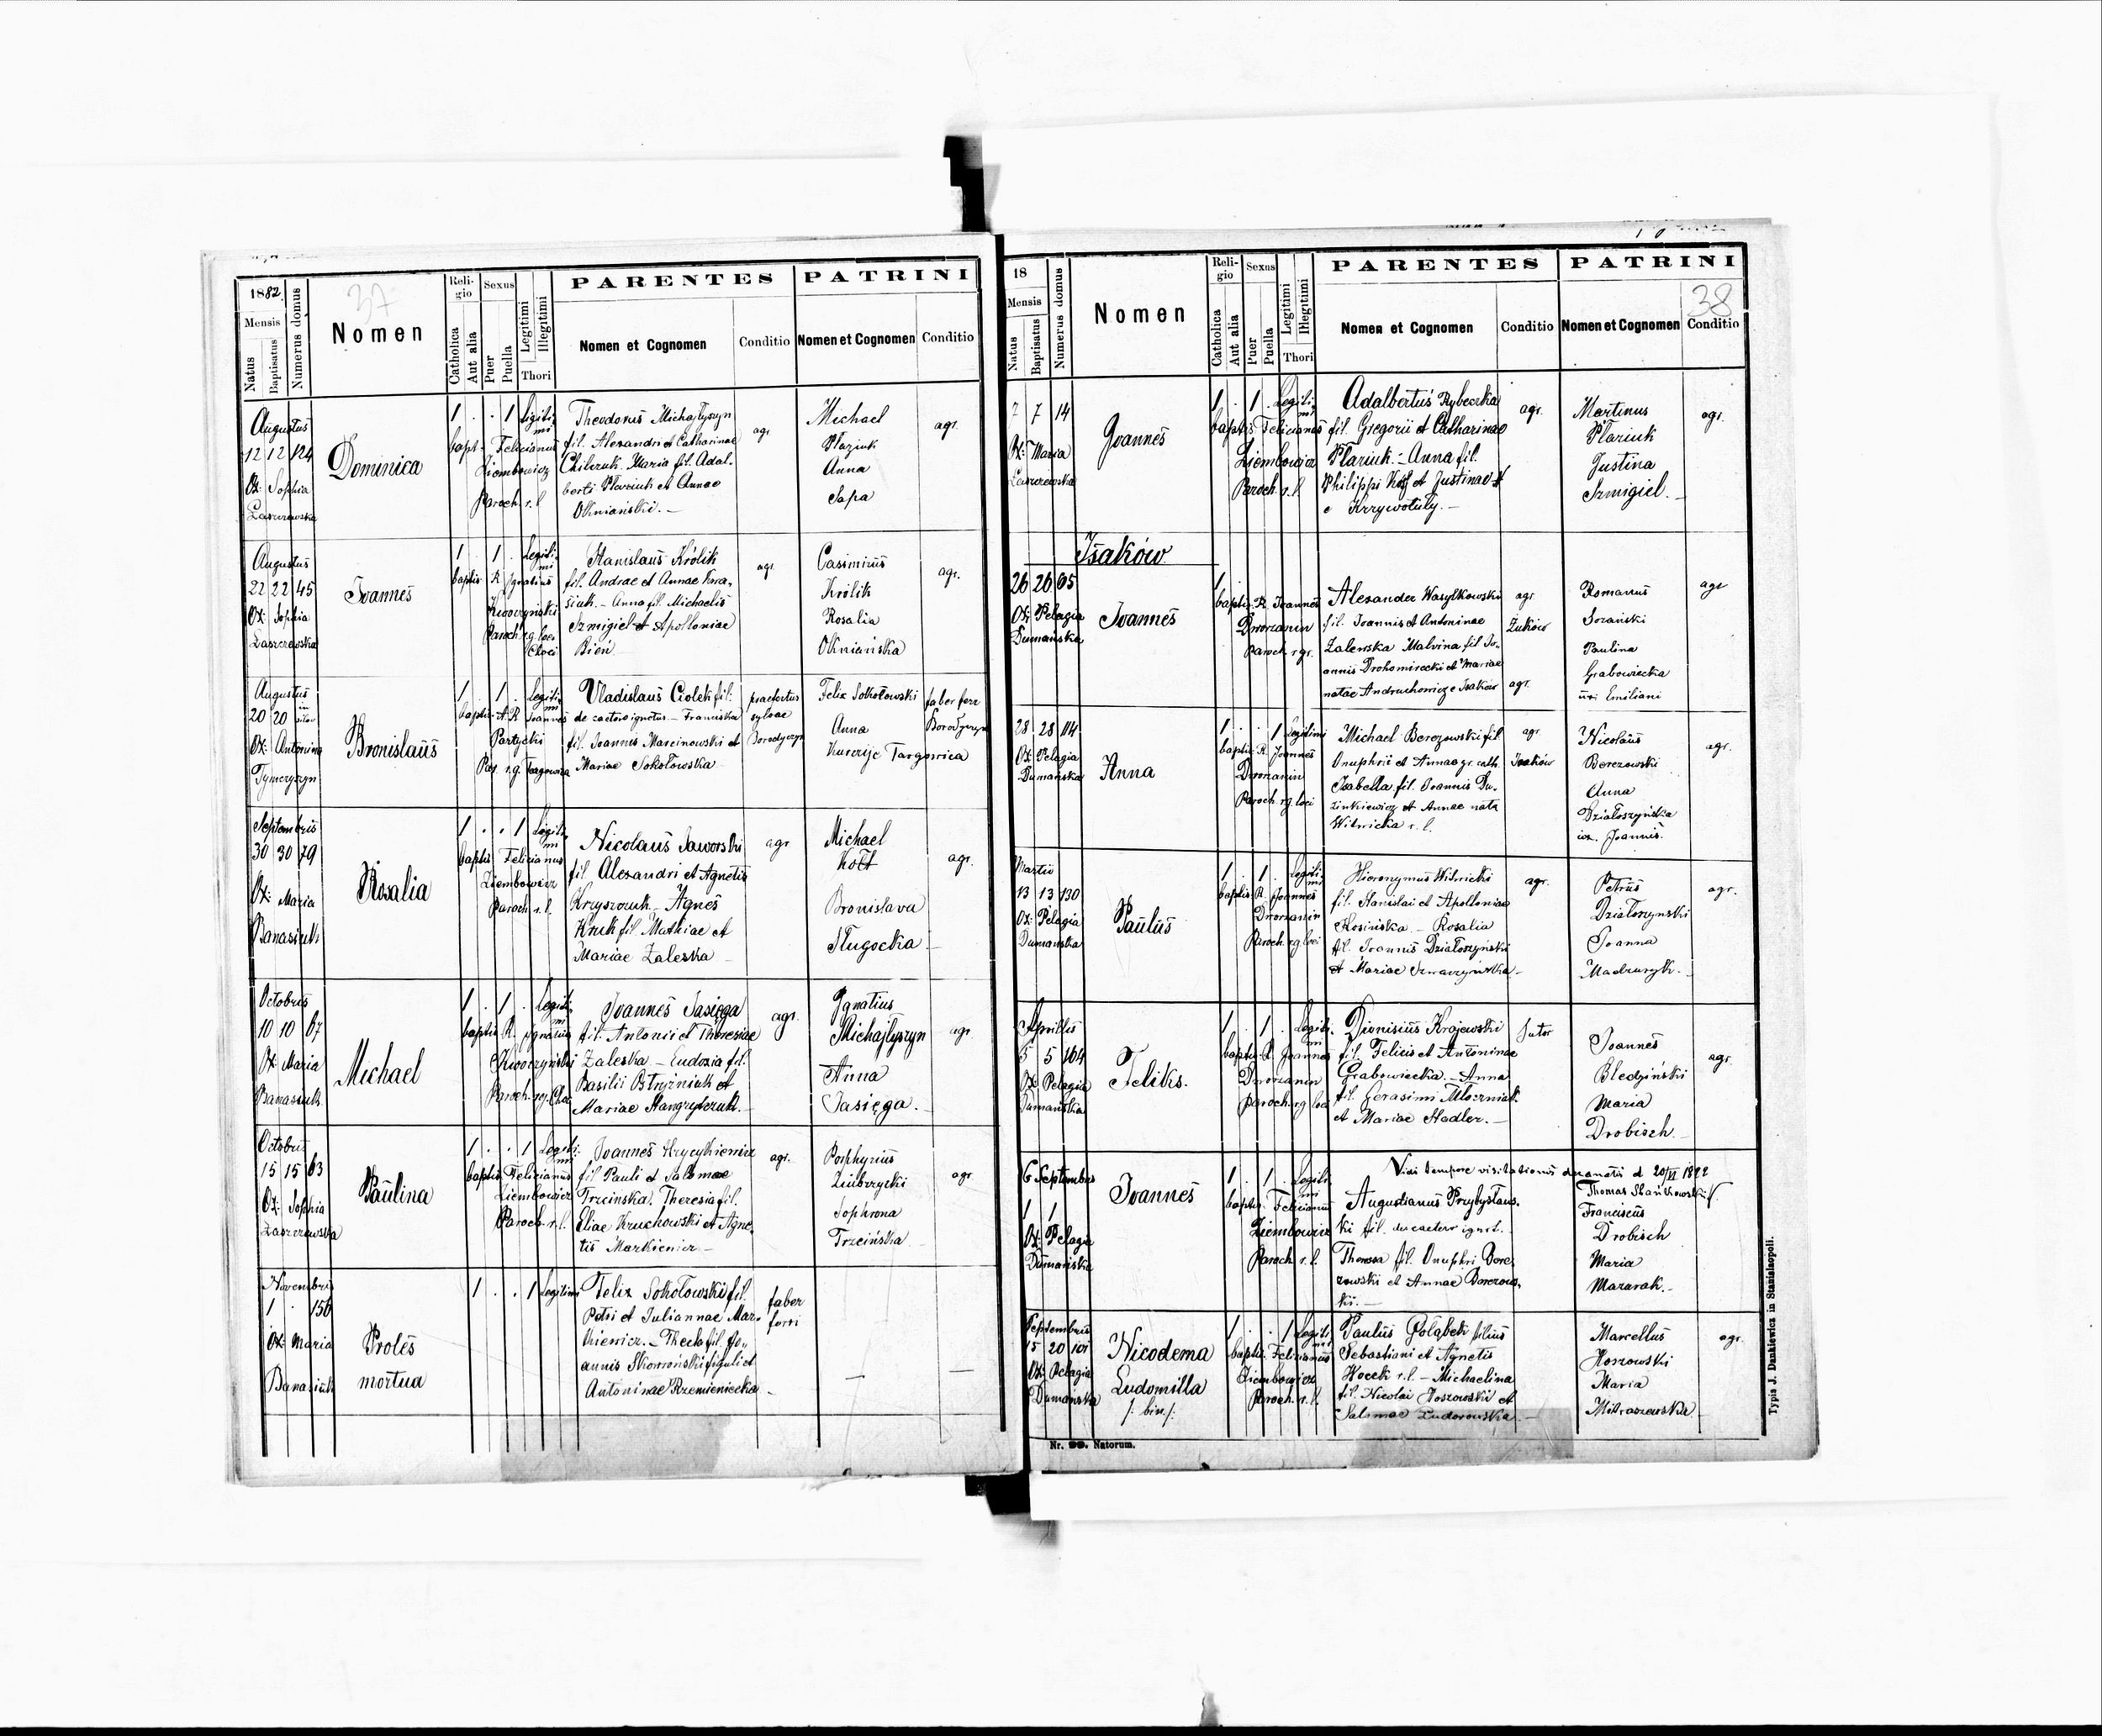 1882
37
Mensis
Natus
Baptisatus
Numerus domus
Nomen
Religio
Catholica
Aut alia
Sexus
Puer
Puella
Legitimi
Illegitimi
Thori
PARENTES
Nomen et Cognomen
Conditio
PATRINI
Nomen et Cognomen
Conditio
Augustus
12 12 124
Ox: Sophia
Dominica
1 . . 1 Legiti-
mi
bapt. Felicianus
Ziembowicz
Paroch. r. l.
Theodorus Michajłyszyn
fil. Alexandri et Catharinae
Maria fil. Adal-
berti Plaziuk et Annae
Okniański. —
agr.
Michael
Plaziuk
Anna
Sapa
agr.
Augustus
22 22 45
Ox: Sophia
Laszczewska
Joannes
1 . 1 . Legiti-
mi
baptis. R. Ignatius
Kwoczyński
Paroch. rg. loci
Choci
Stanislaus Królik
fil. Andreae et Annae
Anna fil. Michaelis
Szmigiel et Apolloniae
Bień
agr.
Casimirus
Królik
Rosalia
Okniańska
agr.
Augustus
20 20 in silva
Ox: Antonina
Tymczyszyn
Bronislaus
1 . 1 . Legiti-
mi
baptis. A. R. Joannes
Partycki
Par. r.g. Targowica
Vladislaus Ciołek fil.
de caetero ignotus — Franciska
fil. Joannis Marcinowski et
Mariae Sokołowska
praefectus
sylvae
Felix Sokołowski
Anna
Targowica
faber ferr
Septembris
30 30 79
Ox: Maria
Banasiuk
Rosalia
1 . . 1 Legiti-
mi
baptis. Felicianus
Ziembowicz
Paroch. r. l.
Nicolaus Jaworski
fil. Alexandri et Agnetis
Agnes
Kruk fil. Mathiae et
Mariae Zaleska —
agr.
Michael
Kott
Bronislava
Sługocka —
agr.
Octobris
10 10 67
Ox: Maria
Banasiuk
Michael
1 . 1 . Legiti-
mi
baptis. R. Ignatius
Kwoczyński
Paroch. rg. Choc
Joannes Jasięga
fil. Antonii et Theresiae
Zaleska — Eudoxia fil.
Basilii et
Mariae
agr.
Ignatius
Michajłyszyn
Anna
Jasięga. —
agr.
Octobris
15 15 63
Ox: Sophia
Laszczewska
Paulina
1 . . 1 Legiti-
mi
baptis. Felicianus
Ziembowicz
Paroch. r. l.
Joannes Hrycykiewicz
fil. Pauli et Salomae
Trzcinska. Theresia fil.
Eliae Kruchowski et Agne-
tis Markiewicz —
agr.
Porphyrius
Sophrona
Trzcińska
agr
Novembris
1 . 156
Ox: Maria
Banasiuk
Proles
mortua
1 . . 1 Legitimi
Felix Sokołowski fil.
Petri et Juliannae Mar-
kiewicz. — Thecla fil. Jo-
annis Skowroński figuli et
Antoninae Rzemieniecka —
faber
ferri
—
—
18
38
Mensis
Natus
Baptisatus
Numerus domus
Nomen
Religio
Catholica
Aut alia
Sexus
Puer
Puella
Legitimi
Illegitimi
Thori
PARENTES
Nomen et Cognomen
Conditio
PATRINI
Nomen et Cognomen
Conditio
7 7 14
Ox: Maria
Joannes
1 . 1 . Legiti-
mi
baptis. Felicianus
Ziembowicz
Paroch. r. l.
Adalbertus Rybeczka
fil. Gregorii et Catharinae
Plaziuk. — Anna fil.
Philippi et Justinae
e Krzywotuły. —
agr.
Martinus
Plaziuk
Justina
Szmigiel. —
agr.
Isaków
26 26 65
Ox: Pelagia
Dumańska
Joannes
1
baptis. R. Joannes
Dworzanin
Paroch. r. gr.
Alexander Wasylkowski
fil. Joannis et Antoninae
Zalewska Malvina fil. Jo-
annis Drohomirecki et Mariae
natae Andruchowicz e Isaków
agr.
Żuków
agr.
Romanus
Sozański
Paulina
Grabowiecka
uxi Emiliani
agr
28 28 114
Ox: Pelagia
Dumańska
Anna
1 . . 1 Legitimi
baptis. R. Joannes
Dworzanin
Paroch. rg. loci
Michael Berezowski fil.
Onuphrii et Annae gr. cath.
Isabella fil. Joannis Du-
zinkiewicz et Annae nata
Witwicka r. l.
agr.
Isaków
Nicolaus
Berezowski
Anna
Działoszyńska
ux. Joannis.
agr.
Martii
13 13 130
Ox: Pelagia
Dumańska
Paulus
1 . 1 . Legiti-
mi
baptis. R. Joannes
Dworzanin
Paroch. rg loci
Hieronymus Witwicki
fil. Stanislai et Apolloniae
Kosińska. — Rosalia
fil. Joannis Działoszyński
et Mariae
agr.
Petrus
Działoszynski
Joanna
agr.
Aprillis
5 5 164
Ox: Pelagia
Dumańska
Feliks.
1 . 1 . Legiti-
mi
baptis. R. Joannes
Dworzanin
Paroch. rg loci
Dionisius Krajewski
fil. Felicis et Antoninae
Grabowiecka. — Anna
fil. Gerasimi
et Mariae Stadler. —
Sutor
Joannes
Bledziński
Maria
Drobisch —
agr.
Vidi tempore visitationis decanatis d. 20/VI 1882
6 Septembris
1 1
Ox: Pelagia
Dumańska
Joannes
1 . 1 . Legiti-
mi
baptis. Felicianus
Ziembowicz
Paroch. r. l.
Augustianus Przybysław-
ki fil. de caetero ignot.
Theresa fil. Onuphri Bere-
zowski et Annae Berezows-
ki. —
Franciscus
Drobisch
Maria
Mazurak. —
Septembris
15 20 101
Ox: Pelagia
Dumańska
Nicodema
Ludomilla
/: bin. :/
1 . . 1 Legiti-
mi
baptis. Felicianus
Ziembowicz
Paroch. r. l.
Paulus Gołąbek filius
Sebastiani et Agnetis
Kocek r. l. — Michaelina
fil. Nicolai Hoszowski et
Salomae —
Marcellus
Hoszowski
Maria
Mitraszewska
agr.
Nr. 99. Natorum.
Typis J. Dankiewicz in Stanislaopoli.